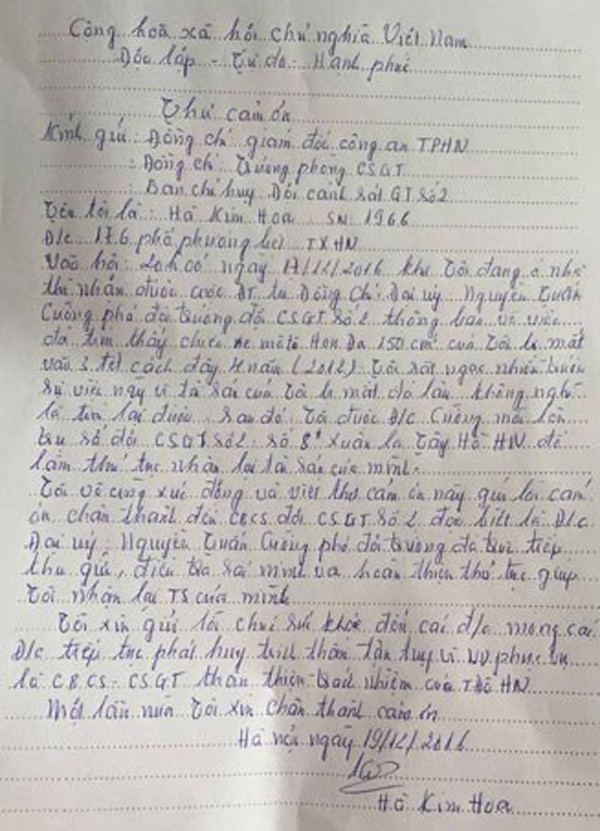 Công hoà xã hội chủ nghĩa Việt Nam
Độc lập - Tự do - Hạnh phúc
Thư cảm ơn
Kính gửi: Đồng chí giám đốc công an TPHN
: Đồng chí trưởng phòng CSGT
: Ban chỉ huy Đội cảnh sát GT số 2
Tên tôi là: Hà Kim Hoa SN: 1966
Đ/c 176 phố phương TXHN
Vào hồi: 20h00 ngày 17/12/2016 khi tôi đang ở nhà
thì nhận được cuộc ĐT từ Đồng chí Đại uý Nguyễn Tuấn
Cường phó đội trưởng đội CSGT số 2 thông báo về việc
đã tìm thấy chiếc xe mô tô Hon Da 150 cm³ của tôi bị mất
vào 3 tết cách đây 4 năm (2012) Tôi rất ngạc nhiên trước
sự việc này vì tài sản của tôi bị mất đã lâu không nghĩ
là tìm lại được. Sau đó tôi được Đ/c Cường mời lên
trụ sở đội CSGT số 2, số 8 Xuân la Tây Hồ HN để
làm thủ tục nhận lại tài sản của mình.
Tôi vô cùng xúc động và viết thư cảm ơn này gửi lời cảm
ơn chân thành đến CBCS đội CSGT số 2 đặc biệt là Đ/c
Đại uý: Nguyễn Tuấn Cường phó đội trưởng đã trực tiếp
thu giữ, điều tra xác minh và hoàn thiện thủ tục giúp
tôi nhận lại TS của mình
Tôi xin gửi lời chúc sức khoẻ đến các đ/c mong các
Đ/c tiếp tục phát huy tinh thần tận tuỵ vì ND phục vụ
là CBCS - CSGT thân thiện trách nhiệm của TĐô HN
Một lần nữa tôi xin chân thành cảm ơn
Hà nội ngày 19/12/2016
Hà Kim Hoa